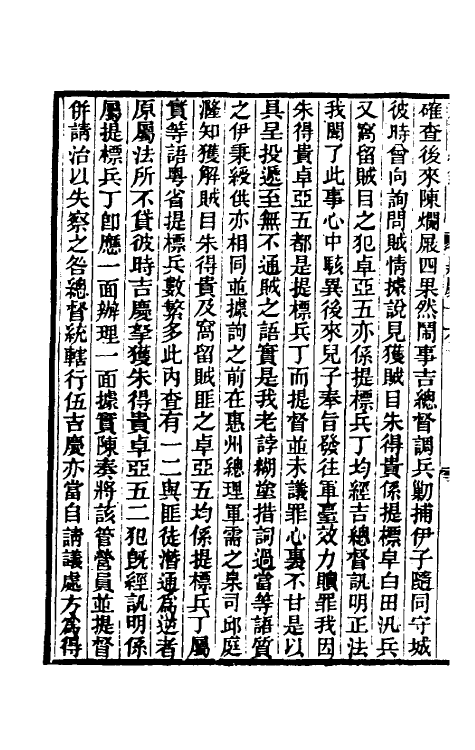 確查後來陳爛屐四果然鬧事吉總督調兵勦捕伊子隨同守城
彼時曾向詢問賊情據說見獲賊目朱得貴係提標卓白田汛兵
又窩留賊目之犯卓亞五亦係提標兵丁均經吉總督訊明正法
我聞了此事心中駭異後來兒子奉旨發往軍臺效力贖罪我因
朱得貴卓亞五都是提標兵丁而提督並未議罪心裏不甘是以
具呈投遞至無不通賊之語實是我老誖糊塗措詞過當等語質
之伊秉綬供亦相同並據詢之前在惠州總理軍需之臬司邱庭
漋知獲解賊目朱得貴及窩留賊匪之卓亞五均係提標兵丁屬
實等語粵省提標兵數繁多此內查有一二與匪徒潛通為逆者
原屬法所不貸彼時吉慶拏獲朱得貴卓亞五二犯旣經訊明係
屬提標兵丁卽應一面辦理一面據實陳奏將該管營員並提督
併請治以失察之咎總督統轄行伍吉慶亦當自請議處方為得